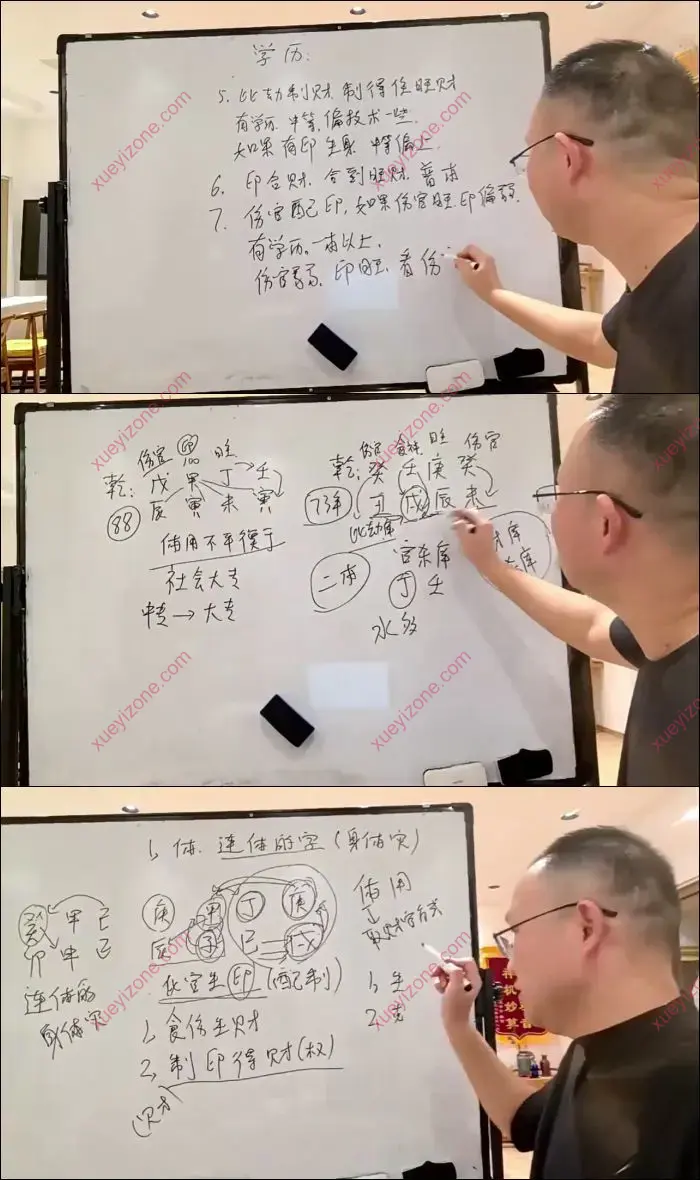 学历:
5、比劫制财,制得住旺财
有学历,中等,偏技术一些.
如果有印生身,中等偏上.
6、印合财,合到旺财,普本
7、伤官配印,如果伤官旺,印偏弱,
有学历。一本以上,
伤官弱,印旺,看伤
xueyizone.com
xueyizone.com
xueyizone.com
xueyizone.com
伤官 印 旺
乾: 戊 甲 丁 壬
辰 寅 未 寅
88
体用不平衡于
社会大专
中专→大专
伤官 食神 旺 伤官
乾: 癸 壬 庚 癸
73年 丑 戌 辰 未
比劫库
官杀库
丁 壬
二本
水多
库
库
xueyizone.com
xueyizone.com
xueyizone.com
xueyizone.com
1、体、连体的字(身体灾)
癸 甲 己
卯 申 巳
连体的
身体灾
庚 甲 丁 庚
辰 子 巳 戌
化官生印(配制)
1、食伤生财
2、制印得财(权)
(财)
体用
取财富方式
1、生
2、克
xueyizone.com
xueyizone.com
xueyizone.com
xueyizone.com